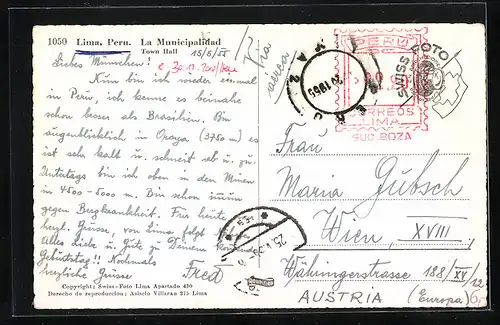 1050 Lima, Peru. La Municipalidad
Town Hall
15/5/55
Via
aerea!
Liebes Münschen!
Nun bin ich wieder einmal
in Peru, ich kenne es beinahe
schon besser als Brasilien. Bin
augenblicklich in Oroya (3750 m) es
ist sehr kalt u. schneit ab u. zu.
Untertags bin ich oben in den Minen
in 4500-5000 m. Bin schon immun
gegen Bergkrankheit. Für heute
hzgl. Grüsse, von Lima folgt
Alles Liebe u. Gute zu Deinem
Geburtstag!! Nochmals
herzliche Grüsse Fred
Copyright: Swiss-Foto Lima Apartado 430
Derecho de reproduccion: Asiscio Villaran 215 Lima
PERU
CORREOS
LIMA
SUC. BOZA
SWISS FOTO
1955
Frau
Maria Gübsch
Wien, XVIII
Währingerstrasse 188/XV/12
AUSTRIA (Europa)